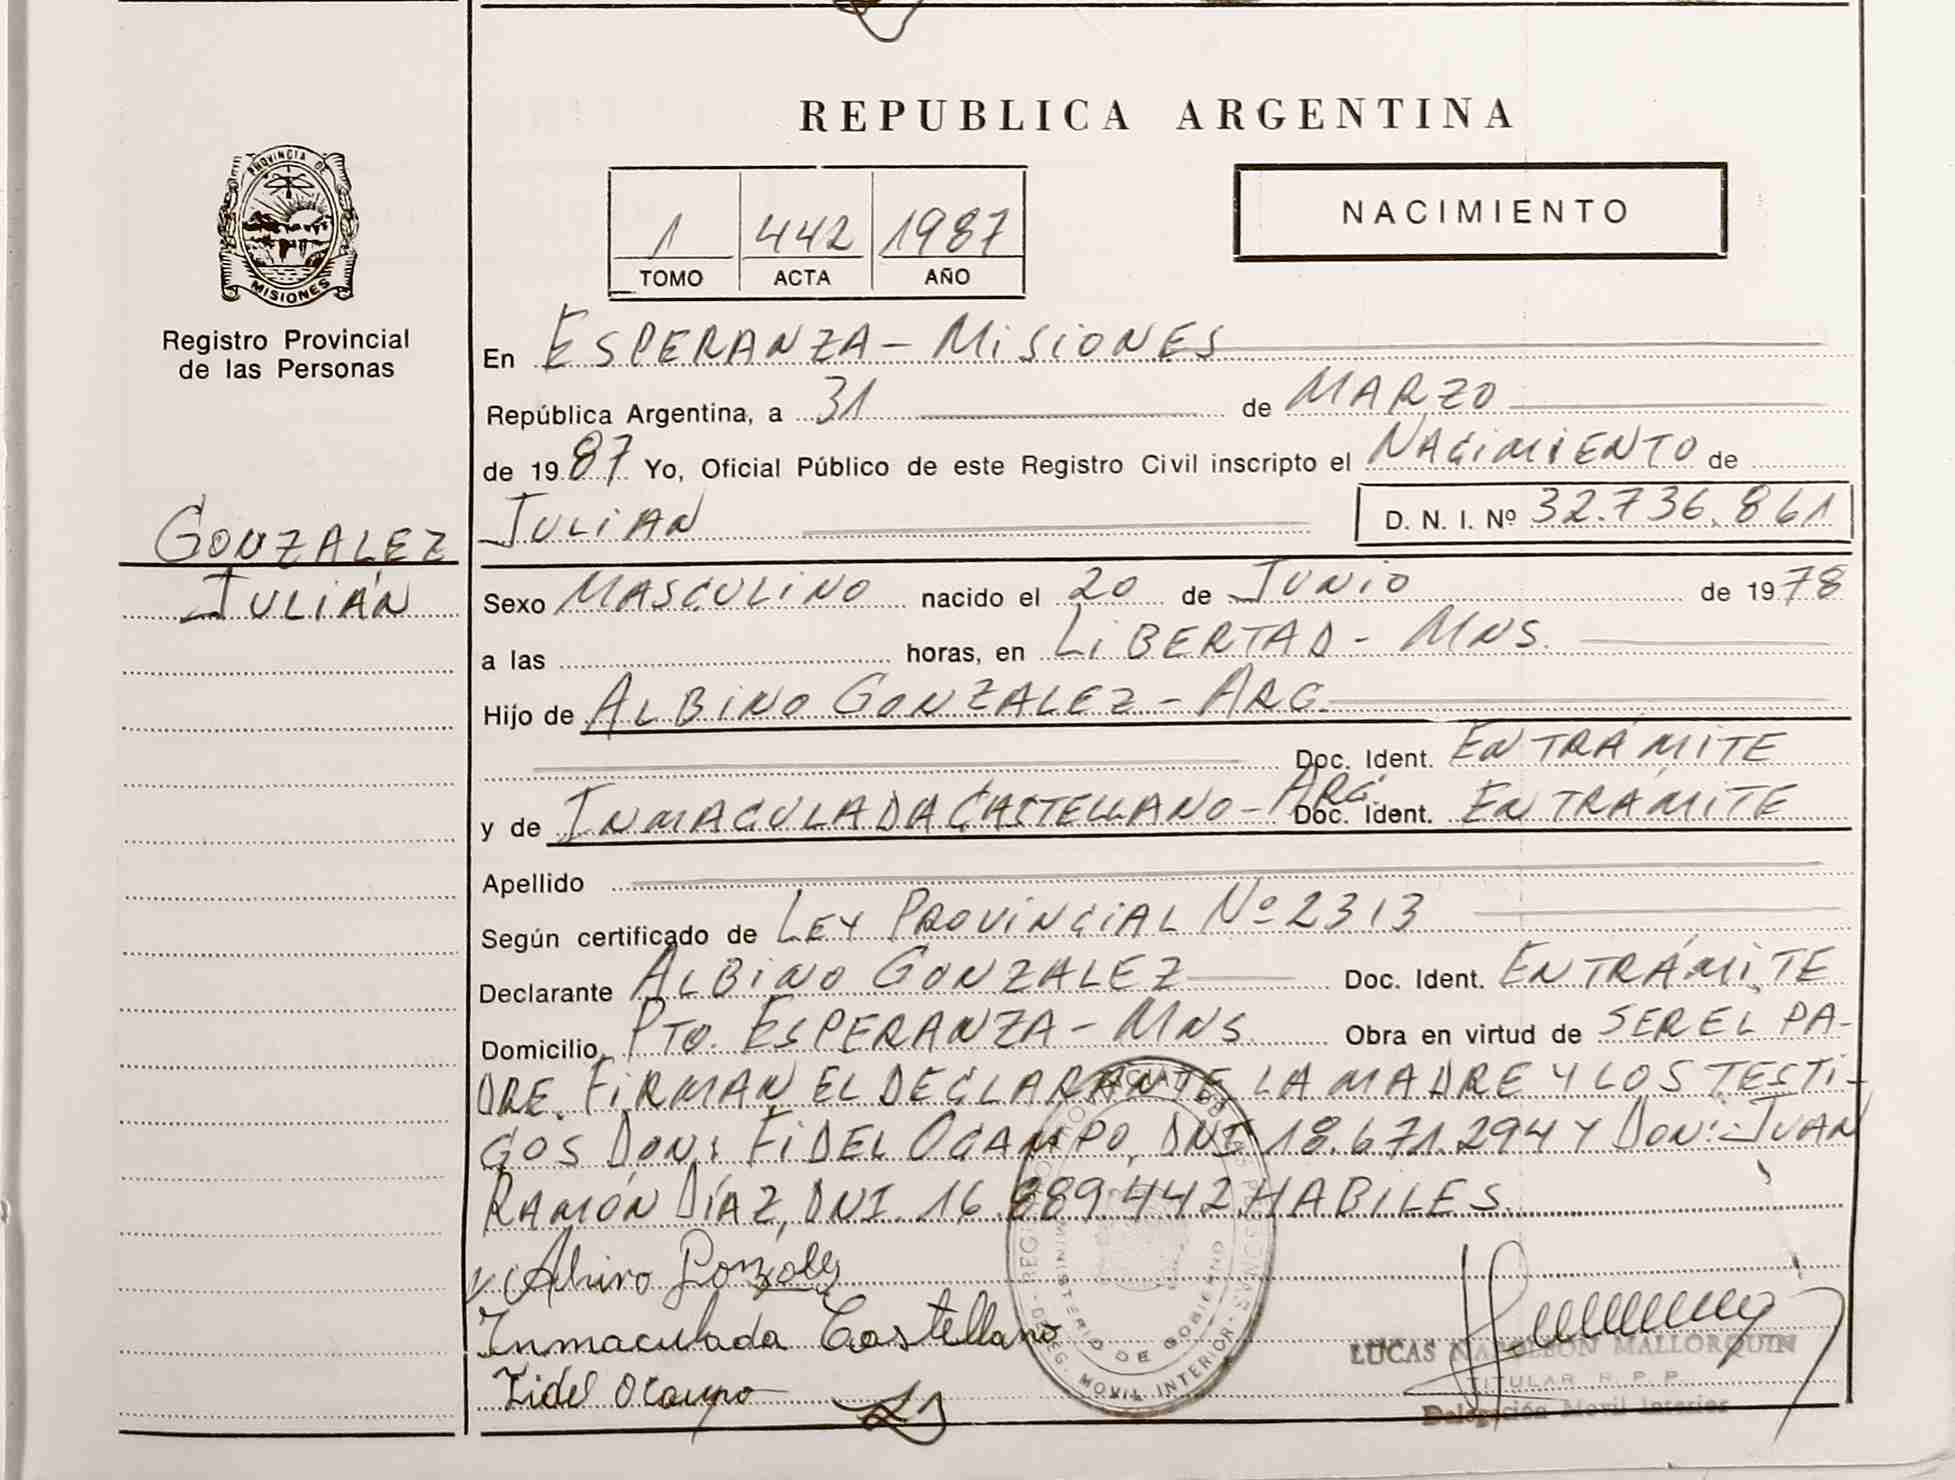 REPUBLICA ARGENTINA
PROVINCIA DE
MISIONES
Registro Provincial
de las Personas
1 442 1987
TOMO ACTA AÑO
NACIMIENTO
En ESPERANZA - MISIONES
República Argentina, a 31 de MARZO
de 1987 Yo, Oficial Público de este Registro Civil inscripto el NACIMIENTO de
JULIAN D. N. I. Nº 32.736.861
GONZALEZ
JULIÁN
Sexo MASCULINO nacido el 20 de JUNIO de 1978
a las horas, en LIBERTAD - MNS.
Hijo de ALBINO GONZALEZ - ARG.
Doc. Ident. EN TRÁMITE
y de INMACULADA CASTELLANO - ARG. Doc. Ident. EN TRÁMITE
Apellido
Según certificado de LEY PROVINCIAL Nº 2313
Declarante ALBINO GONZALEZ Doc. Ident. EN TRÁMITE
Domicilio PTO. ESPERANZA - MNS. Obra en virtud de SER EL PA-
DRE. FIRMAN EL DECLARANTE LA MADRE Y LOS TESTI-
GOS DON: FIDEL OCAMPO, DNI 18.671.294 Y DON: JUAN
RAMÓN DÍAZ, DNI. 16.889.442 HABILES.
Albino Gonzalez
Inmaculada Castellano
Fidel Ocampo
MINISTERIO DE GOBIERNO
DELEG. MOVIL INTERIOR
LUCAS NAPOLEON MALLORQUIN
TITULAR R. P. P.
Delegación Movil Interior